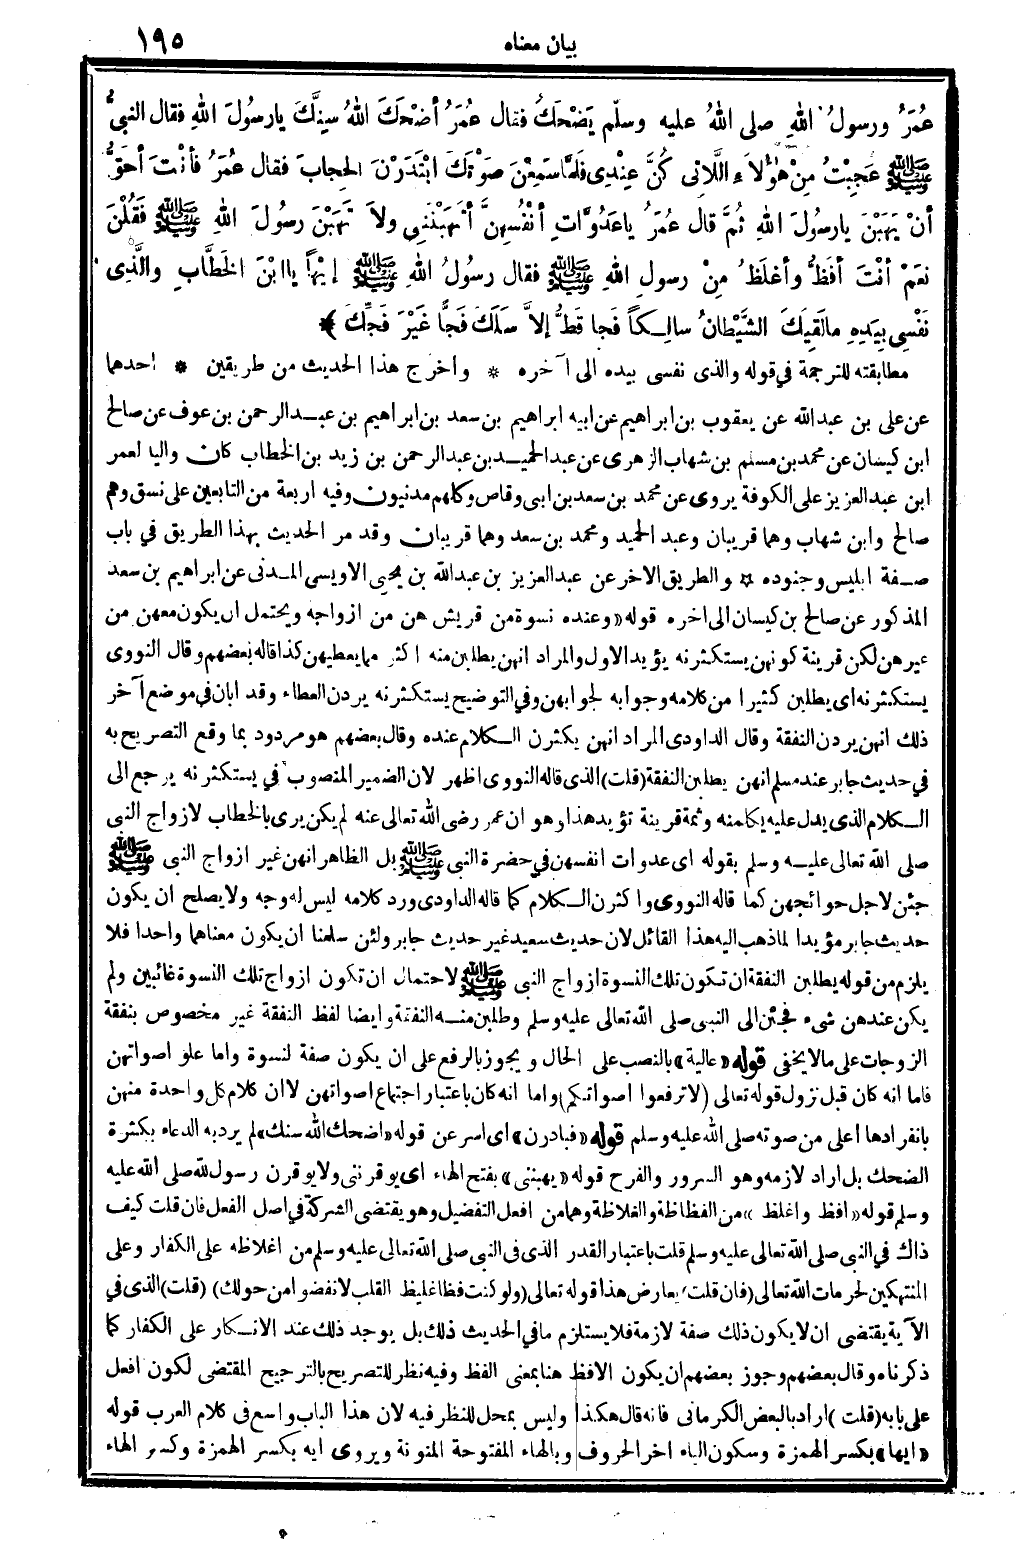 بيان معناه
١٩٥
عُمَرُ ورسولُ اللهِ صلى اللهُ عليه وسلّم يَضْحَكُ فقال عُمَرُ أضْحَكَ اللهُ سِنَّكَ يارسُولَ اللهِ فقال النبيُّ
ﷺ عَجِبْتُ مِنْ هٰؤُلاَءِ اللَّاتِى كُنَّ عِنْدِى فَلَمَّا سَمِعْنَ صَوْتَكَ ابْتَدَرْنَ الحِجابَ فقال عُمَرُ فأنْتَ أحَقُّ
أنْ يَهَبْنَ يارسُولَ اللهِ ثُمَّ قال عُمَرُ ياعَدُوَّاتِ أنْفُسِهِنَّ أتَهَبْنَنِى ولاَ تَهَبْنَ رسولَ اللهِ ﷺ فَقُلْنَ
نَعَمْ أنْتَ أفَظُّ وأغلَظُ مِنْ رسولِ اللهِ ﷺ فقال رسولُ اللهِ ﷺ إيْهاً ياابْنَ الخَطَّابِ والَّذِى
نَفْسِى بِيَدِهِ مالَقِيَكَ الشَّيْطانُ سالِكاً فَجا قَطُّ إلاَّ سَلَكَ فَجًّا غَيْرَ فَجِّكَ ﴾
مطابقته للترجمة في قوله والذى نفسى بيده الى آخره * واخرج هذا الحديث من طريقين * احدهما
عن على بن عبدالله عن يعقوب بن ابراهيم عن ابيه ابراهيم بن سعد بن ابراهيم بن عبدالرحمن بن عوف عن صالح
ابن كيسان عن محمد بن مسلم بن شهاب الزهرى عن عبدالحميد بن عبدالرحمن بن زيد بن الخطاب كان واليا لعمر
ابن عبدالعزيز على الكوفة يروى عن محمد بن سعد بن ابى وقاص وكلهم مدنيون وفيه اربعة من التابعين على نسق وهم
صالح وابن شهاب وهما قريبان وعبد الحميد ومحمد بن سعد وهما قريبان وقد مر الحديث بهذا الطريق في باب
صفة ابليس وجنوده * والطريق الاخر عن عبدالعزيز بن عبدالله بن يحيى الاويسى المدنى عن ابراهيم بن سعد
المذكور عن صالح بن كيسان الى اخره قوله «وعنده نسوة من قريش هن من ازواجه ويحتمل ان يكون معهن من
غيرهن لكن قرينة كونهن يستكثرنه يؤيد الاول والمراد انهن يطلبن منه اكثر مما يعطيهن كذا قاله بعضهم وقال النووى
يستكثرنه اى يطلبن كثيرا من كلامه وجوابه لجوابهن وفي التوضيح يستكثرنه يردن العطاء وقد ابان في موضع آخر
ذلك انهن يردن النفقة وقال الداودى المراد انهن يكثرن الكلام عنده وقال بعضهم هو مردود بما وقع التصريح به
في حديث جابر عند مسلم انهن يطلبن النفقة (قلت) الذى قاله النووى اظهر لان الضمير المنصوب في يستكثرنه يرجع الى
الكلام الذى يدل عليه يكلمنه وثمة قرينة تؤيد هذا وهو ان عمر رضى الله تعالى عنه لم يكن يرى بالخطاب لازواج النبى
صلى الله تعالى عليه وسلم بقوله اى عدوات انفسهن في حضرة النبى ﷺ بل الظاهر انهن غير ازواج النبى ﷺ
جئن لاجل حوائجهن كما قاله النووى واكثرن الكلام كما قاله الداودى ورد كلامه ليس له وجه ولا يصلح ان يكون
حديث جابر مؤيدا لما ذهب اليه هذا القائل لان حديث سعيد غير حديث جابر ولئن سلمنا ان يكون معناهما واحدا فلا
يلزم من قوله يطلبن النفقة ان تكون تلك النسوة ازواج النبى ﷺ لاحتمال ان تكون ازواج تلك النسوة غائبين ولم
يكن عندهن شىء فجئن الى النبى صلى الله تعالى عليه وسلم وطلبن منه النفقة وايضا لفظ النفقة غير مخصوص بنفقة
الزوجات على ما لا يخفى قوله «عالية» بالنصب على الحال ويجوز بالرفع على ان يكون صفة لنسوة واما علو اصواتهن
فاما انه كان قبل نزول قوله تعالى (لا ترفعوا اصواتكم) واما انه كان باعتبار اجتماع اصواتهن لا ان كلام كل واحدة منهن
بانفرادها أعلى من صوته صلى الله عليه وسلم قوله «فبادرن» اى اسرعن قوله «اضحك الله سنك» لم يرد به الدعاء بكثرة
الضحك بل اراد لازمه وهو السرور والفرح قوله «يهبننى» بفتح الهاء اى يوقرننى ولا يوقرن رسول لله صلى الله عليه
وسلم قوله «افظ واغلظ» من الفظاظة والغلاظة وهما من افعل التفضيل وهو يقتضى الشركة في اصل الفعل فان قلت كيف
ذاك في النبى صلى الله تعالى عليه وسلم قلت باعتبار القدر الذى فى النبى صلى الله تعالى عليه وسلم من اغلاظه على الكفار وعلى
المنتهكين لحرمات الله تعالى (فان قلت) يعارض هذا قوله تعالى (ولو كنت فظا غليظ القلب لانفضوا من حولك) (قلت) الذى في
الآية يقتضى ان لا يكون ذلك صفة لازمة فلا يستلزم ما في الحديث ذلك بل يوجد ذلك عند الانكار على الكفار كما
ذكرناه وقال بعضهم وجوز بعضهم ان يكون الافظ هنا بمعنى الفظ وفيه نظر للتصريح بالترجيح المقتضى لكون افعل
على بابه (قلت) اراد بالبعض الكرمانى فانه قال هكذا وليس بمحل للنظر فيه لان هذا الباب واسع فى كلام العرب قوله
«ايها» بكسر الهمزة وسكون الياء اخر الحروف وبالهاء المفتوحة المنونة ويروى ايه بكسر الهمزة وكسر الهاء